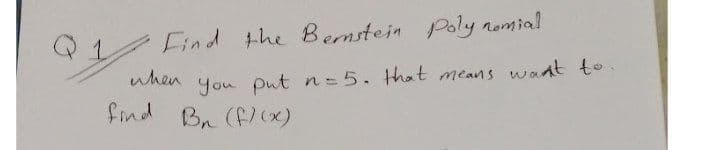 Q 1 Find the Bernstein Polynomial
when you put n=5. that means want to.
find Bn (f)(x)